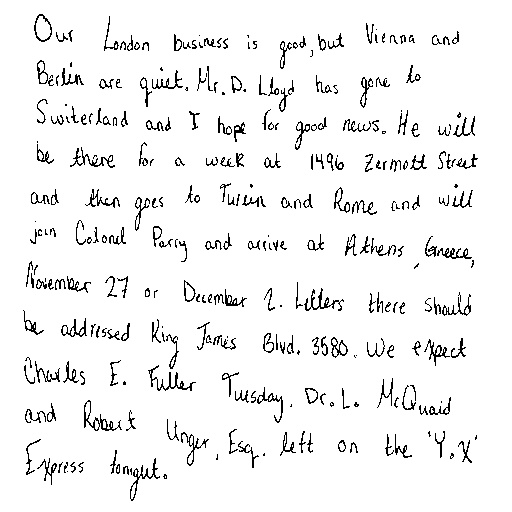 Our London business is good, but Vienna and
Berlin are quiet. Mr. D. Lloyd has gone to
Switerland and I hope for good news. He will
be there for a week at 1496 Zermott Street
and then goes to Turin and Rome and will
join Colonel Parry and arrive at Athens, Greece,
November 27 or December 2. Letters there should
be addressed King James Blvd. 3580. We expect
Charles E. Fuller Tuesday. Dr. L. McQuaid
and Robert Unger, Esq. left on the 'Y.X'
Express tonight.